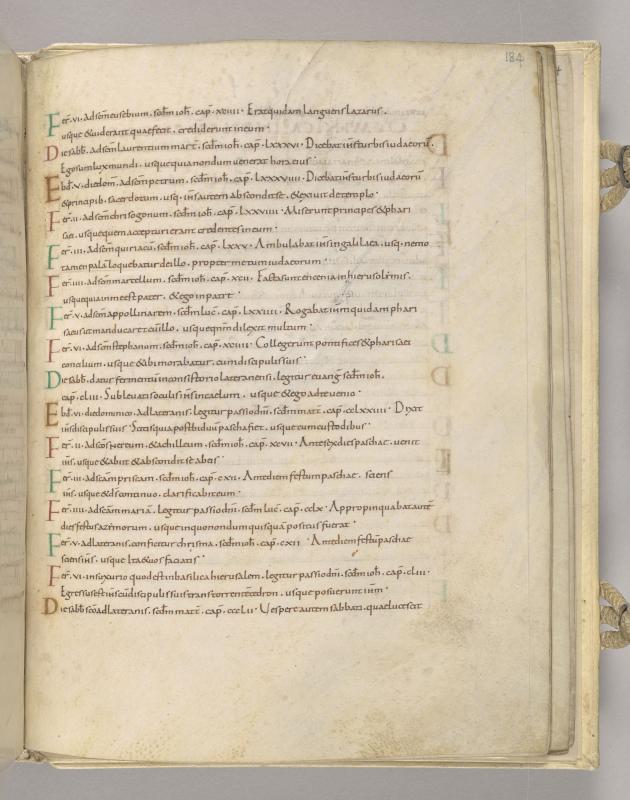 184
Fer·vi·adscm eusebium·scdm ioh·cap·xciiii·Erat quidam languens lazarus·
usque & viderant quae fecit·crediderunt in eum·
Die sabb·adscm laurentium mart·scdm ioh·cap·lxxxvi·Dicebat ihs turbis iudaeorũ·
Ego sum lux mundi·usque quia nondum venerat hora eius·
Ebd·v·die dom·adscm petrum·scdm ioh·cap·lxxxviiii·Dicebat ihs turbis iudaeorũ
& principib·sacerdotum·usq·ihs autem abscondit se·& exivit de templo·
Fer·ii·adscm chrisogonum·scdm ioh·cap·lxxviiii·Miserunt principes & phari
saei·usque quem accepturi erant credentes in eum·
Fer·iii·adscm quiriacũ·scdm ioh·cap·lxxv·Ambulabat ihs in galilaea·usq·nemo
tamen palã loquebatur de illo·propter metum iudaeorum·
Fer·iiii·adscm marcellum·scdm ioh·cap·xcii·Facta sunt encenia in hierosolimis·
usque quia in me est pater·& ego in patre·
Fer·v·adscm appollinarem·scdm luc·cap·lxxiiii·Rogabat ihm quidam phari
saeus ut manducaret cũ illo·usque qnm dilexit multum·
Fer·vi·adscm stephanum·scdm ioh·cap·xciiii·Collegerunt pontifices & pharisaei
concilium·usque & ibi morabatur·cum discipulis suis·
Die sabb·datur fermentum in consistorio lateranensi·legitur euang scdm ioh·
cap·cliii·Sublevatis oculis ihs in caelum·usque & ego ad te venio·
Ebd·vi·die dominico·ad lateranis·legitur passio dni·scdm matt·cap·cclxxiiii·Dixit
ihs discipulis suis·Scitis quia post biduũ pascha fiet·usque cum custodibus·
Fer·ii·adscos nereum·& achilleum·scdm ioh·cap·xcvii·Ante sex dies paschae·venit
ihs·usque & abiit & abscondit se ab eis·
Fer·iii·adscam priscam·scdm ioh·cap·cxii·Ante diem festum paschae·sciens
ihs·usque & ds continuo·clarificabit eum·
Fer·iiii·adscam mariã·legitur passio dni·scdm luc·cap·cclx·Appropinquabat autẽ
dies festus azimorum·usque in quo nondum quisquã positus fuerat·
Fer·v·ad lateranis·conficitur chrisma·scdm ioh·cap·cxii·Ante diem festũ paschae
sciens ihs·usque Ita & vos faciatis·
Fer·vi·in suxurio quod est in basilica hierusalem·legitur passio dni·scdm ioh·cap·clii·
Egressus est ihs cũ discipulis suis trans torrente cedron·usque posuerunt ihm·
Die sabb scõ ad lateranis·scdm matt·cap·ccclii·Vespere autem sabbati·quae lucescit